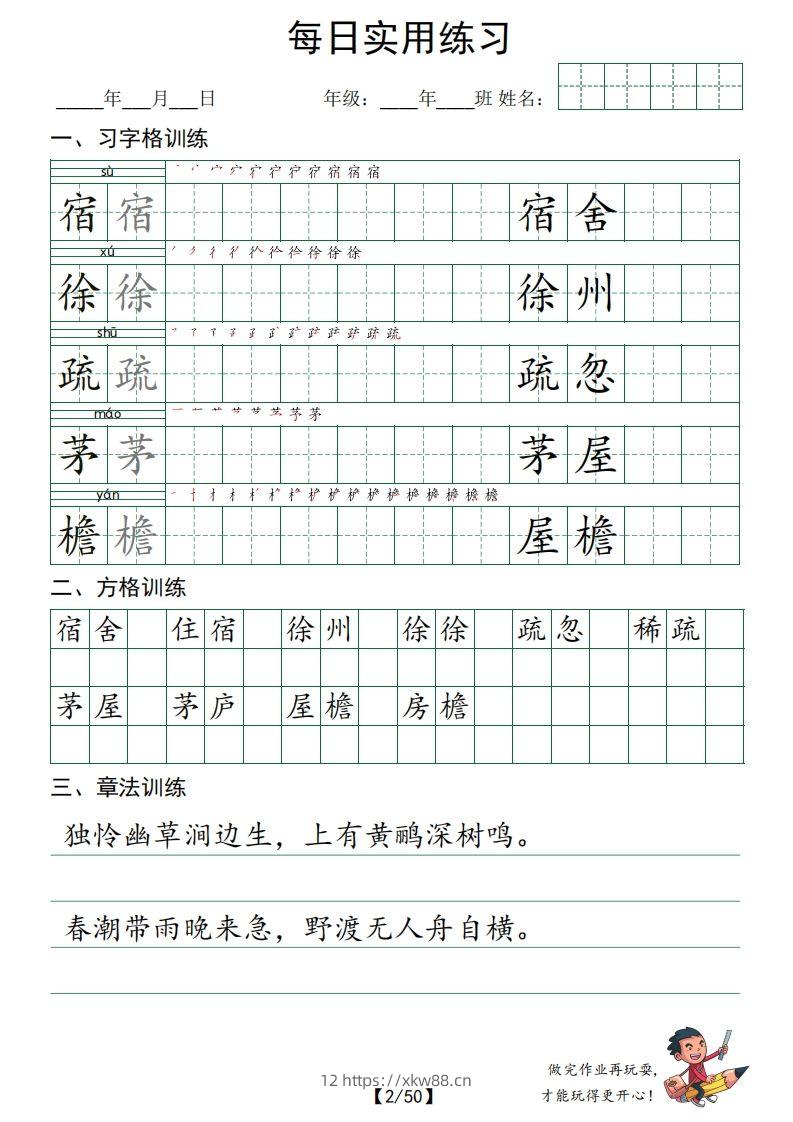 每日实用练习
_____年___月___日 年级：____年____班 姓名：
一、习字格训练
sù
宿 宿 宿 舍
xú
徐 徐 徐 州
shū
疏 疏 疏 忽
máo
茅 茅 茅 屋
yán
檐 檐 屋 檐
二、方格训练
宿舍 住宿 徐州 徐徐 疏忽 稀疏
茅屋 茅庐 屋檐 房檐
三、章法训练
独怜幽草涧边生，上有黄鹂深树鸣。
春潮带雨晚来急，野渡无人舟自横。
做完作业再玩耍，
才能玩得更开心！
12 https://xkw88.cn
【2/50】